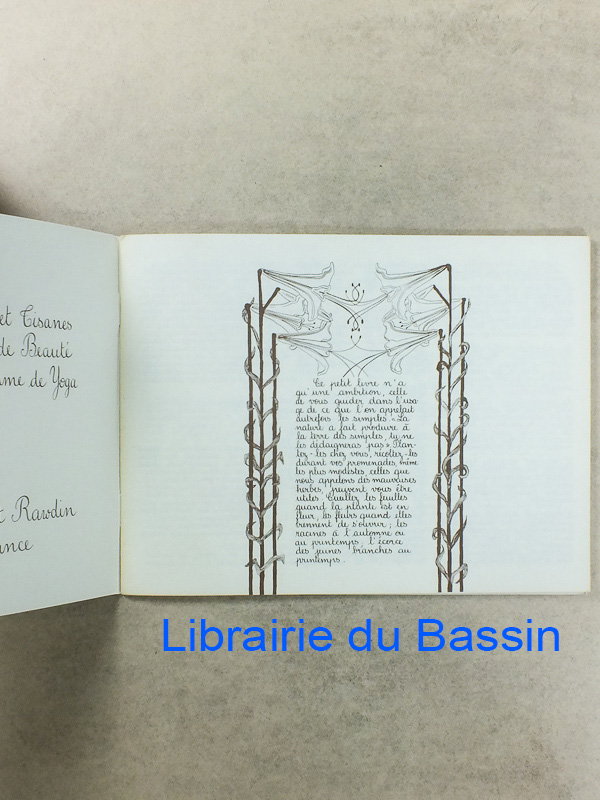 et Tisanes
de Beauté
me de Yoga
Rawdin
ance
Ce petit livre n'a
qu'une ambition, celle
de vous guider dans l'usa
ge de ce que l'on appelait
autrefois les simples. « La
nature a fait produire à
la terre des simples, tu ne
les dédaigneras pas ». Plan-
tez-les chez vous, récoltez-les
durant vos promenades, même
les plus modestes, celles que
nous appelons des mauvaises
herbes, peuvent vous être
utiles. Cueillez les feuilles
quand la plante est en
fleur, les fleurs quand elles
viennent de s'ouvrir ; les
racines à l'automne ou
au printemps ; l'écorce
des jeunes branches au
printemps.
Librairie du Bassin